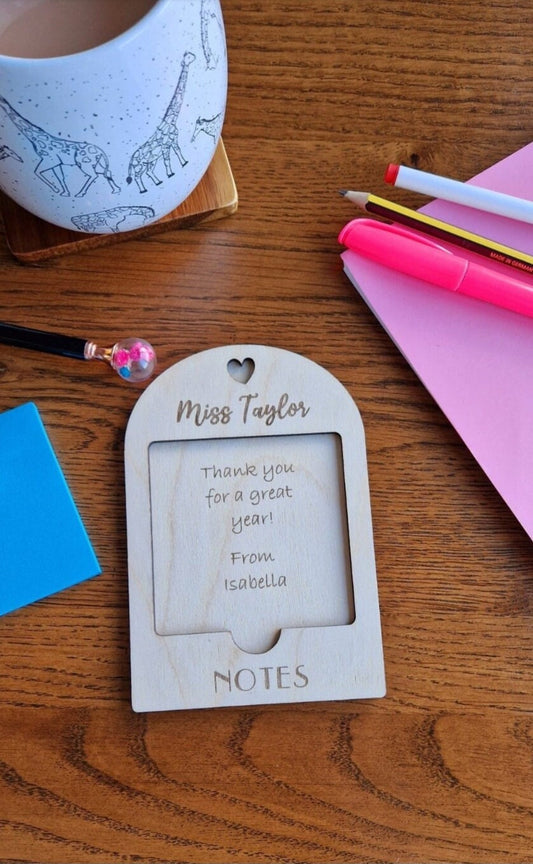 MADE IN GERMANY
Miss Taylor
Thank you
for a great
year!
From
Isabella
NOTES